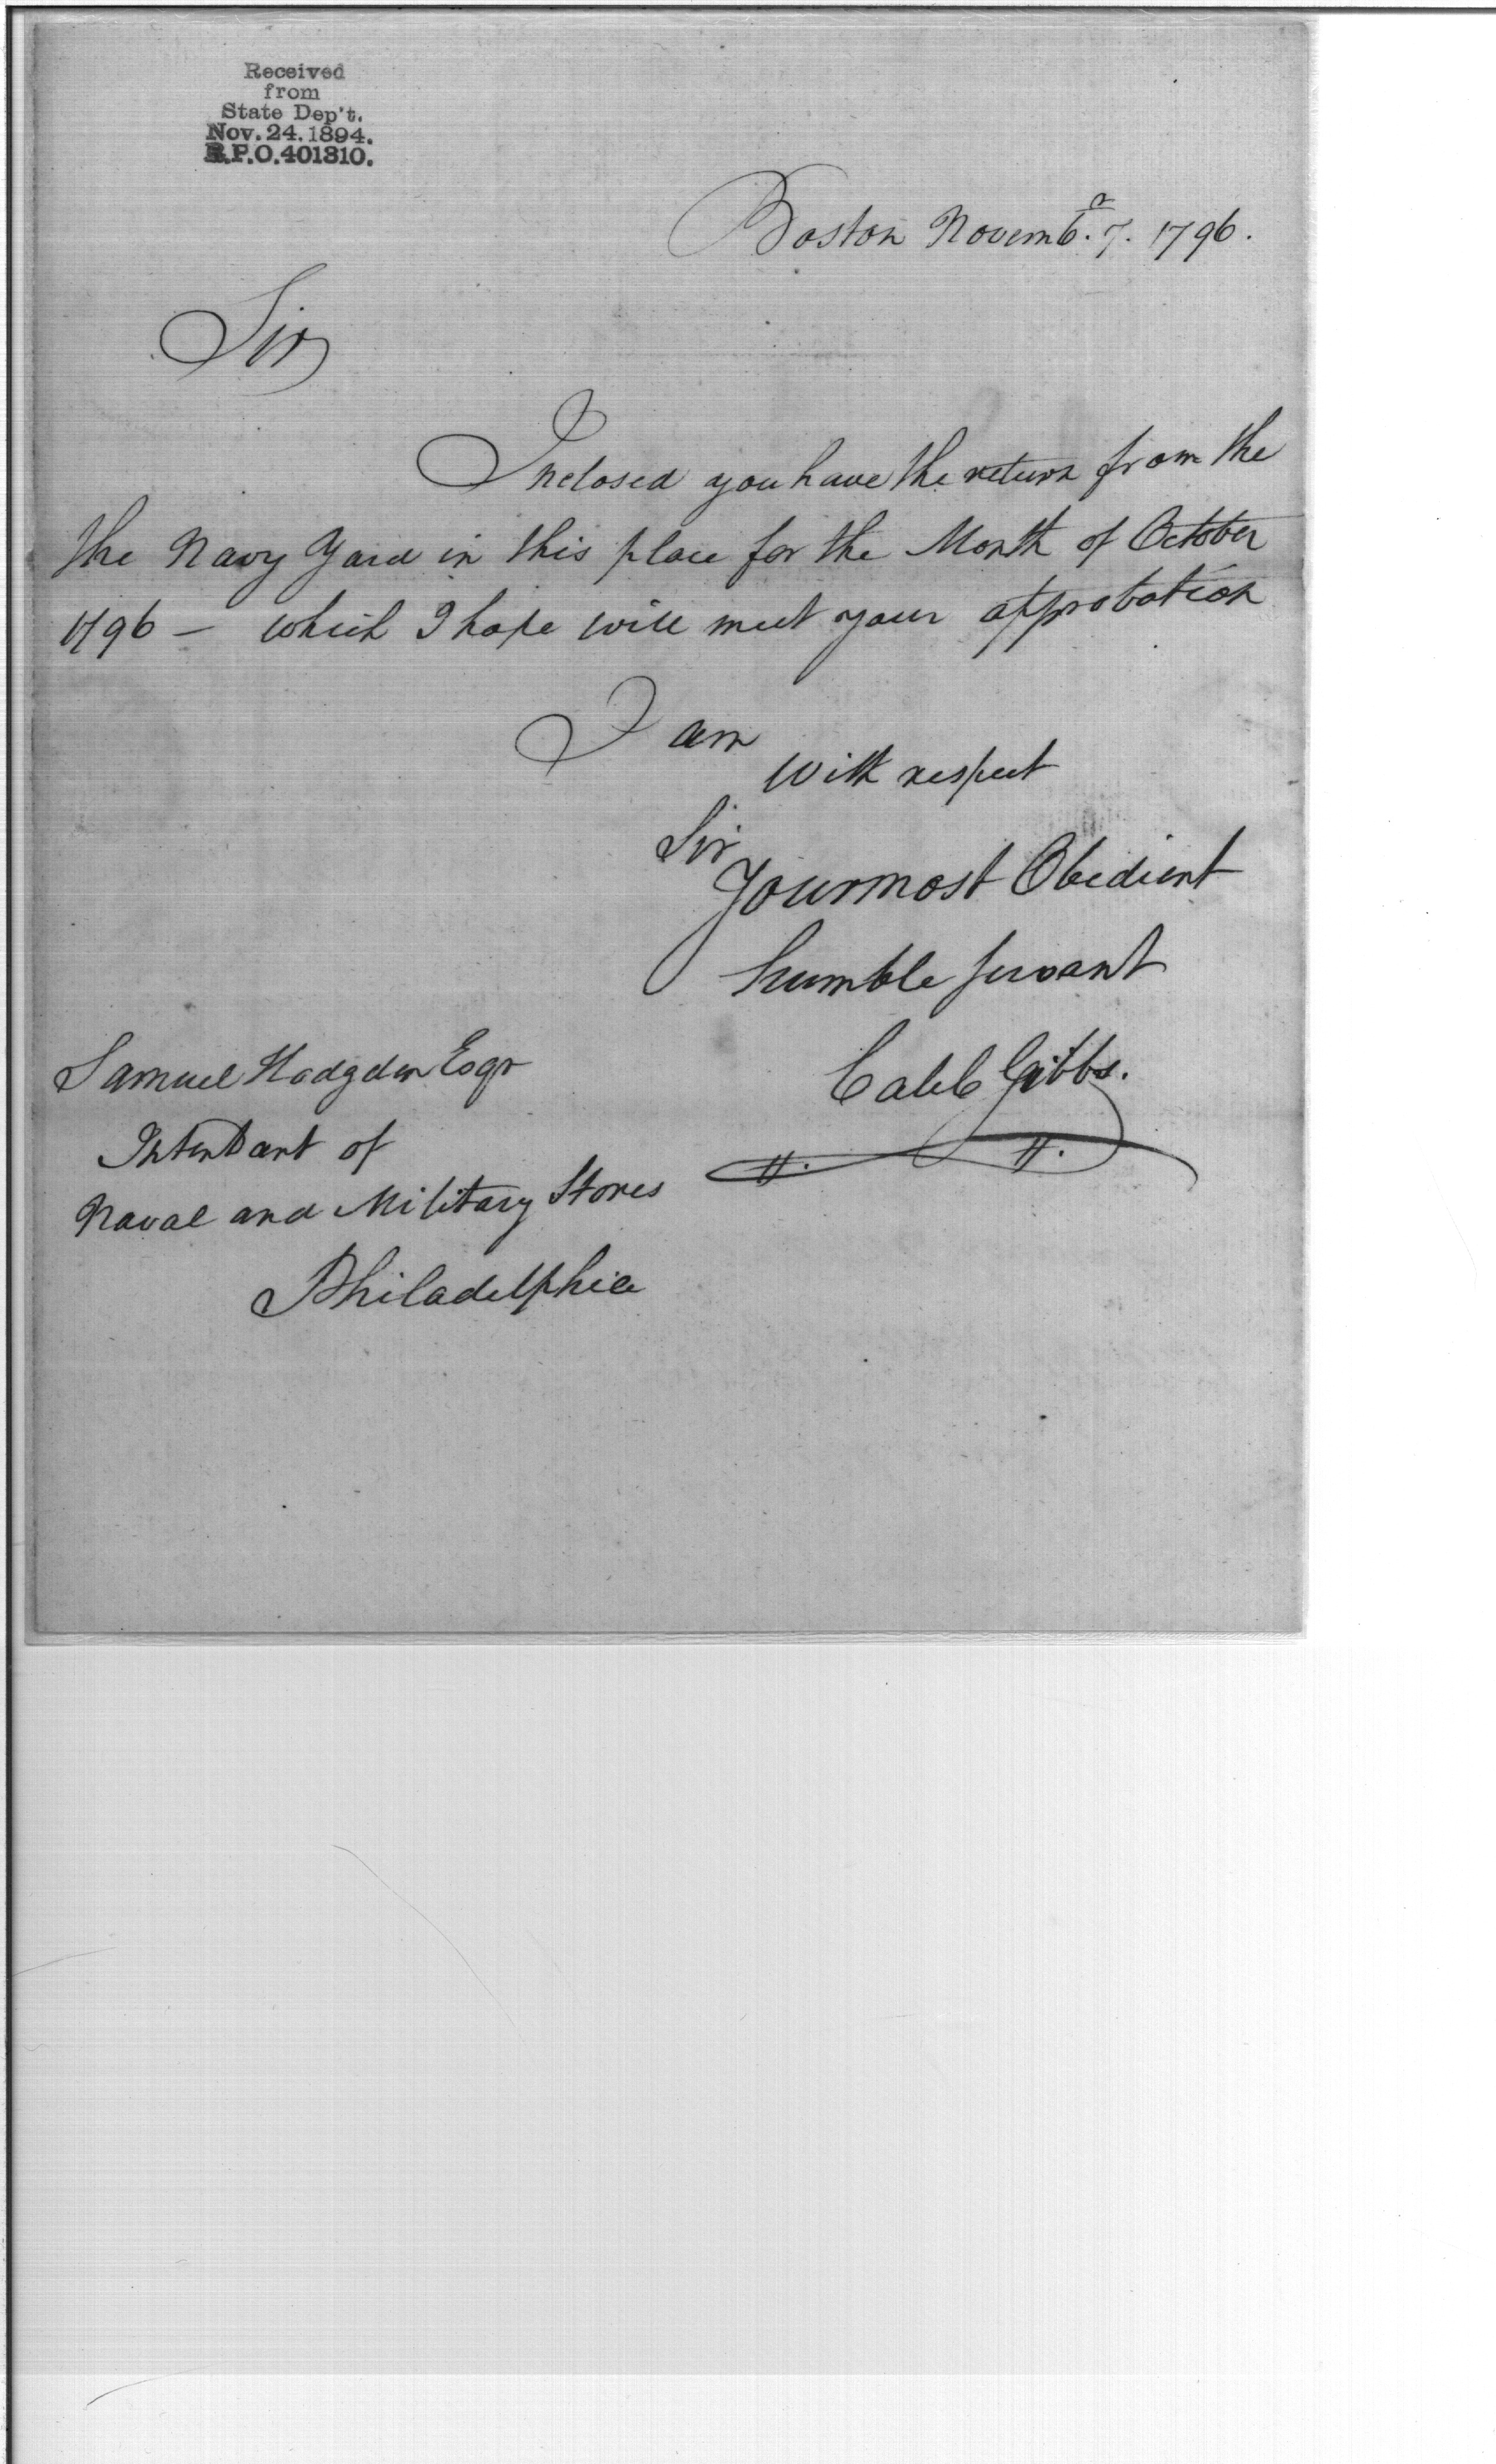 Received
from
State Dep't.
Nov. 24. 1894.
R.P.O. 401310.
Boston Novembr. 7. 1796.
Sir
Inclosed you have the return from the
the Navy Yard in this place for the Month of October
1796 — which I hope will meet your approbation
I am
with respect
Sir
Your most Obedient
humble servant
Caleb Gibbs.
Samuel Hodgdon Esqr
Intendant of
Naval and Military Stores
Philadelphia